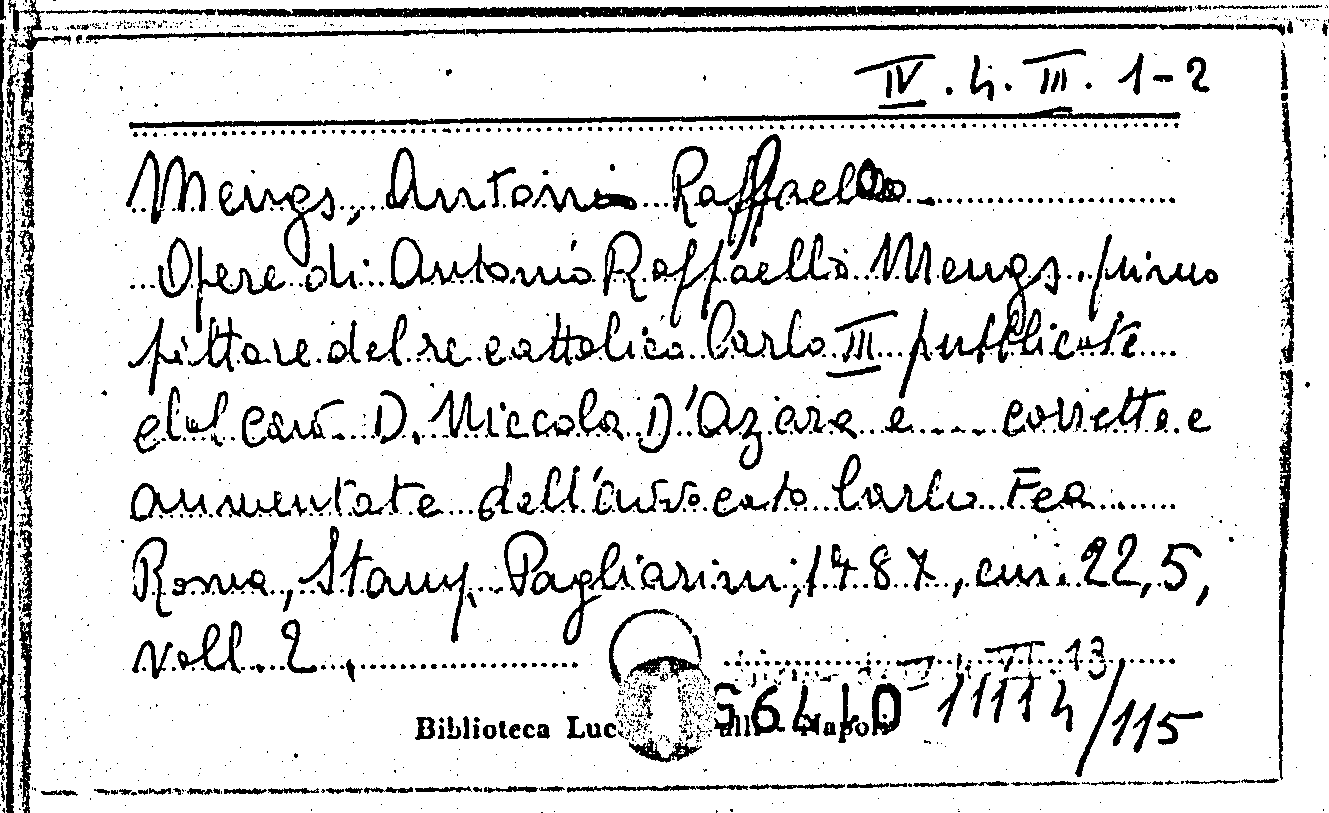 IV. 4. III. 1-2
Mengs, Antonio Raffaello
Opere di Antonio Raffaello Mengs primo
pittore del re cattolico Carlo III pubblicate
dal cav. D. Niccola D'Azara e ... corrette e
aumentate dall'avvocato Carlo Fea
Roma, Stamp. Pagliarini, 1787, cm. 22,5,
voll. 2.
VI. 13
Biblioteca Luc ulli - Napoli
11114/115